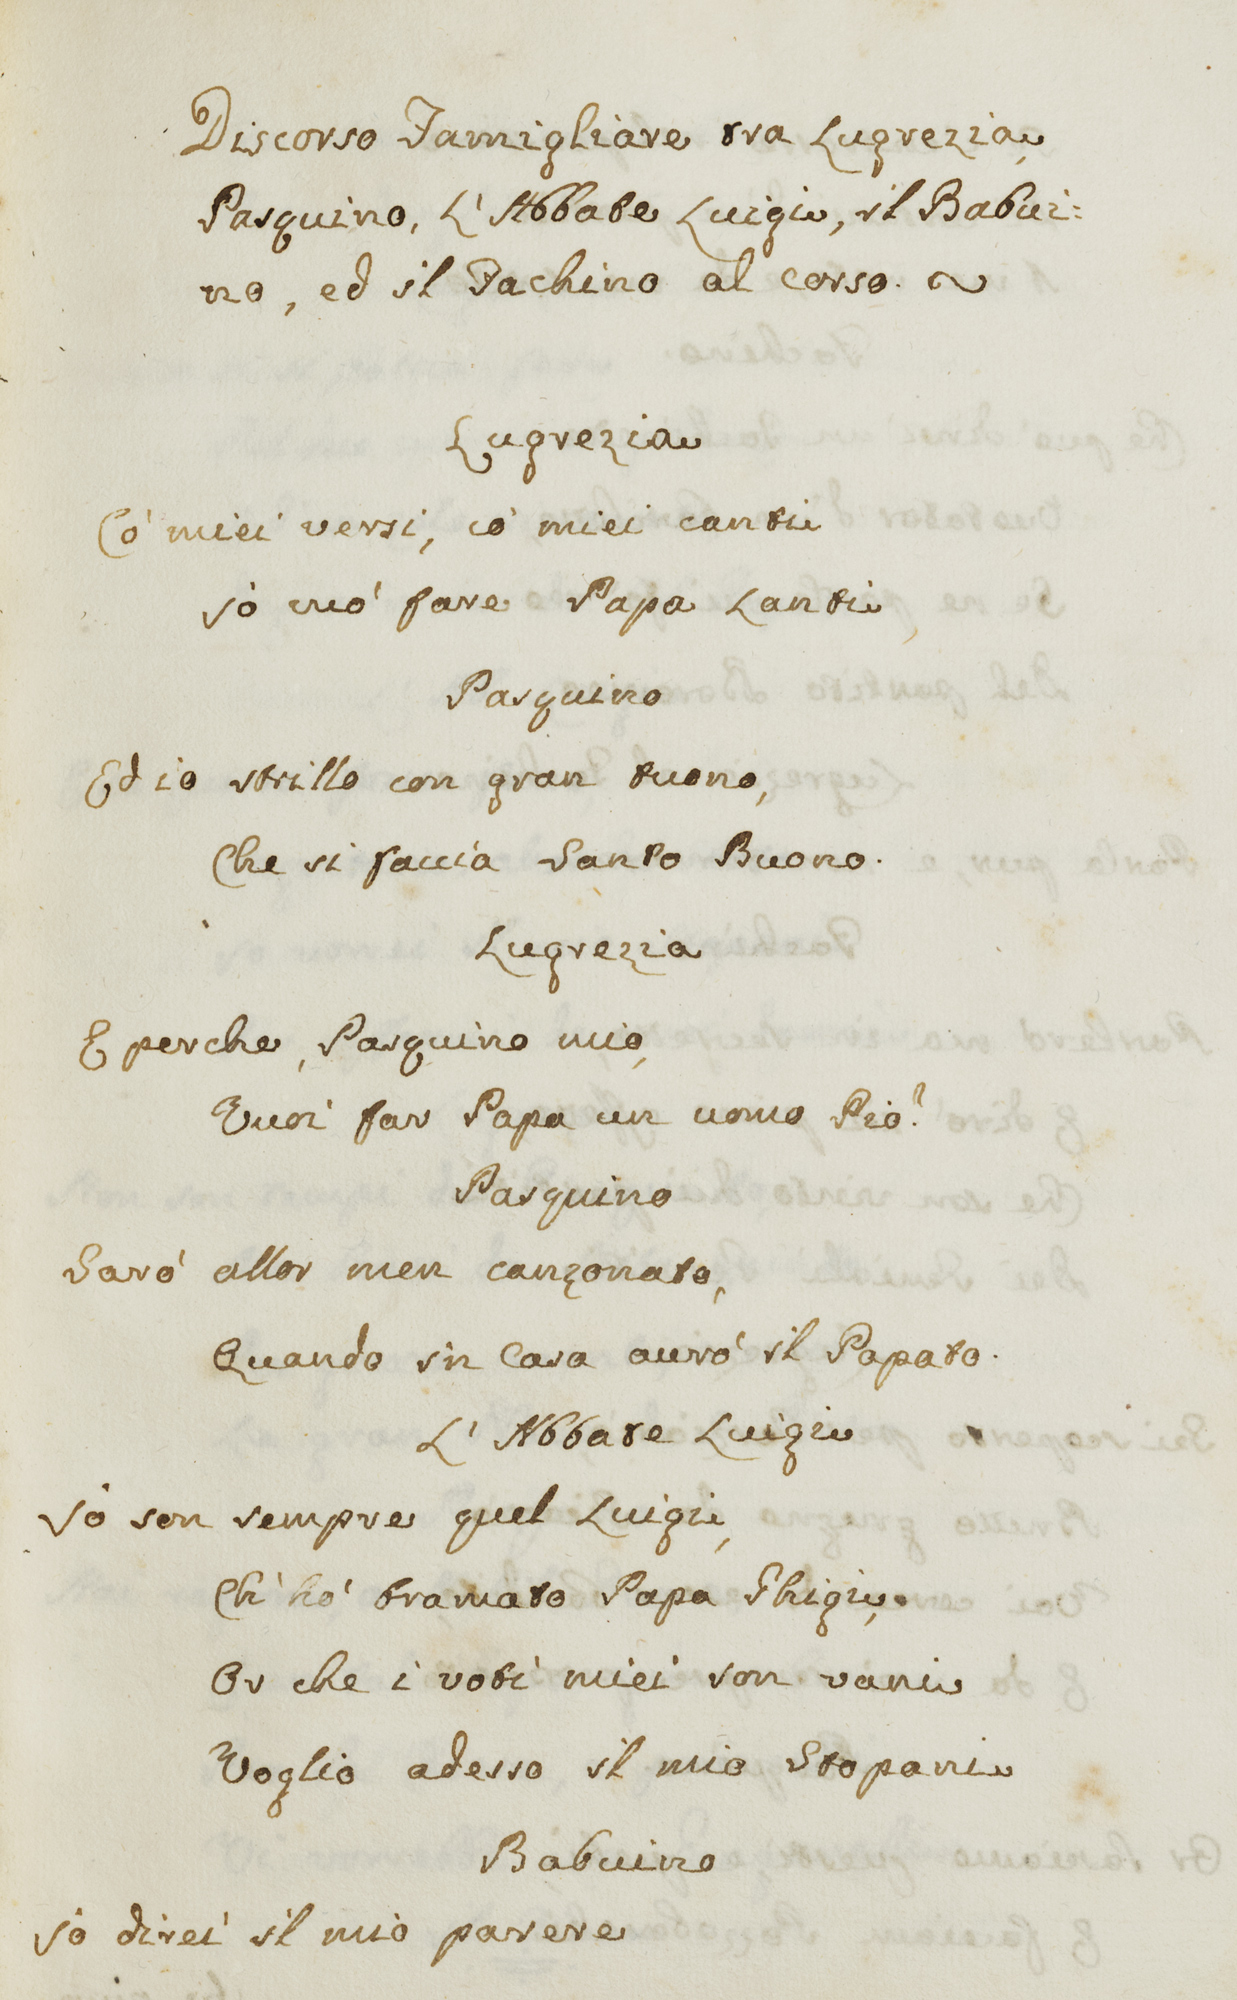 Discorso Famigliare tra Lugrezia,
Pasquino, L'Abbate Luigi, il Babui:
no, ed il Fachino al Corso.
Lugrezia
Co' miei versi, co' miei canti
Io vuo' fare Papa Lanti,
Pasquino
Ed io strillo con gran tuono,
Che si faccia Santo Buono.
Lugrezia
E perche, Pasquino mio,
Vuoi far Papa un uomo Pio?
Pasquino
Sarò allor men canzonato,
Quando in Casa avrò il Papato.
L'Abbate Luigi
Io son sempre quel Luigi,
Ch' hò bramato Papa Ghigi,
Or che i voti miei son vani
Voglio adesso il mio Stopani
Babuino
Io direi il mio parere